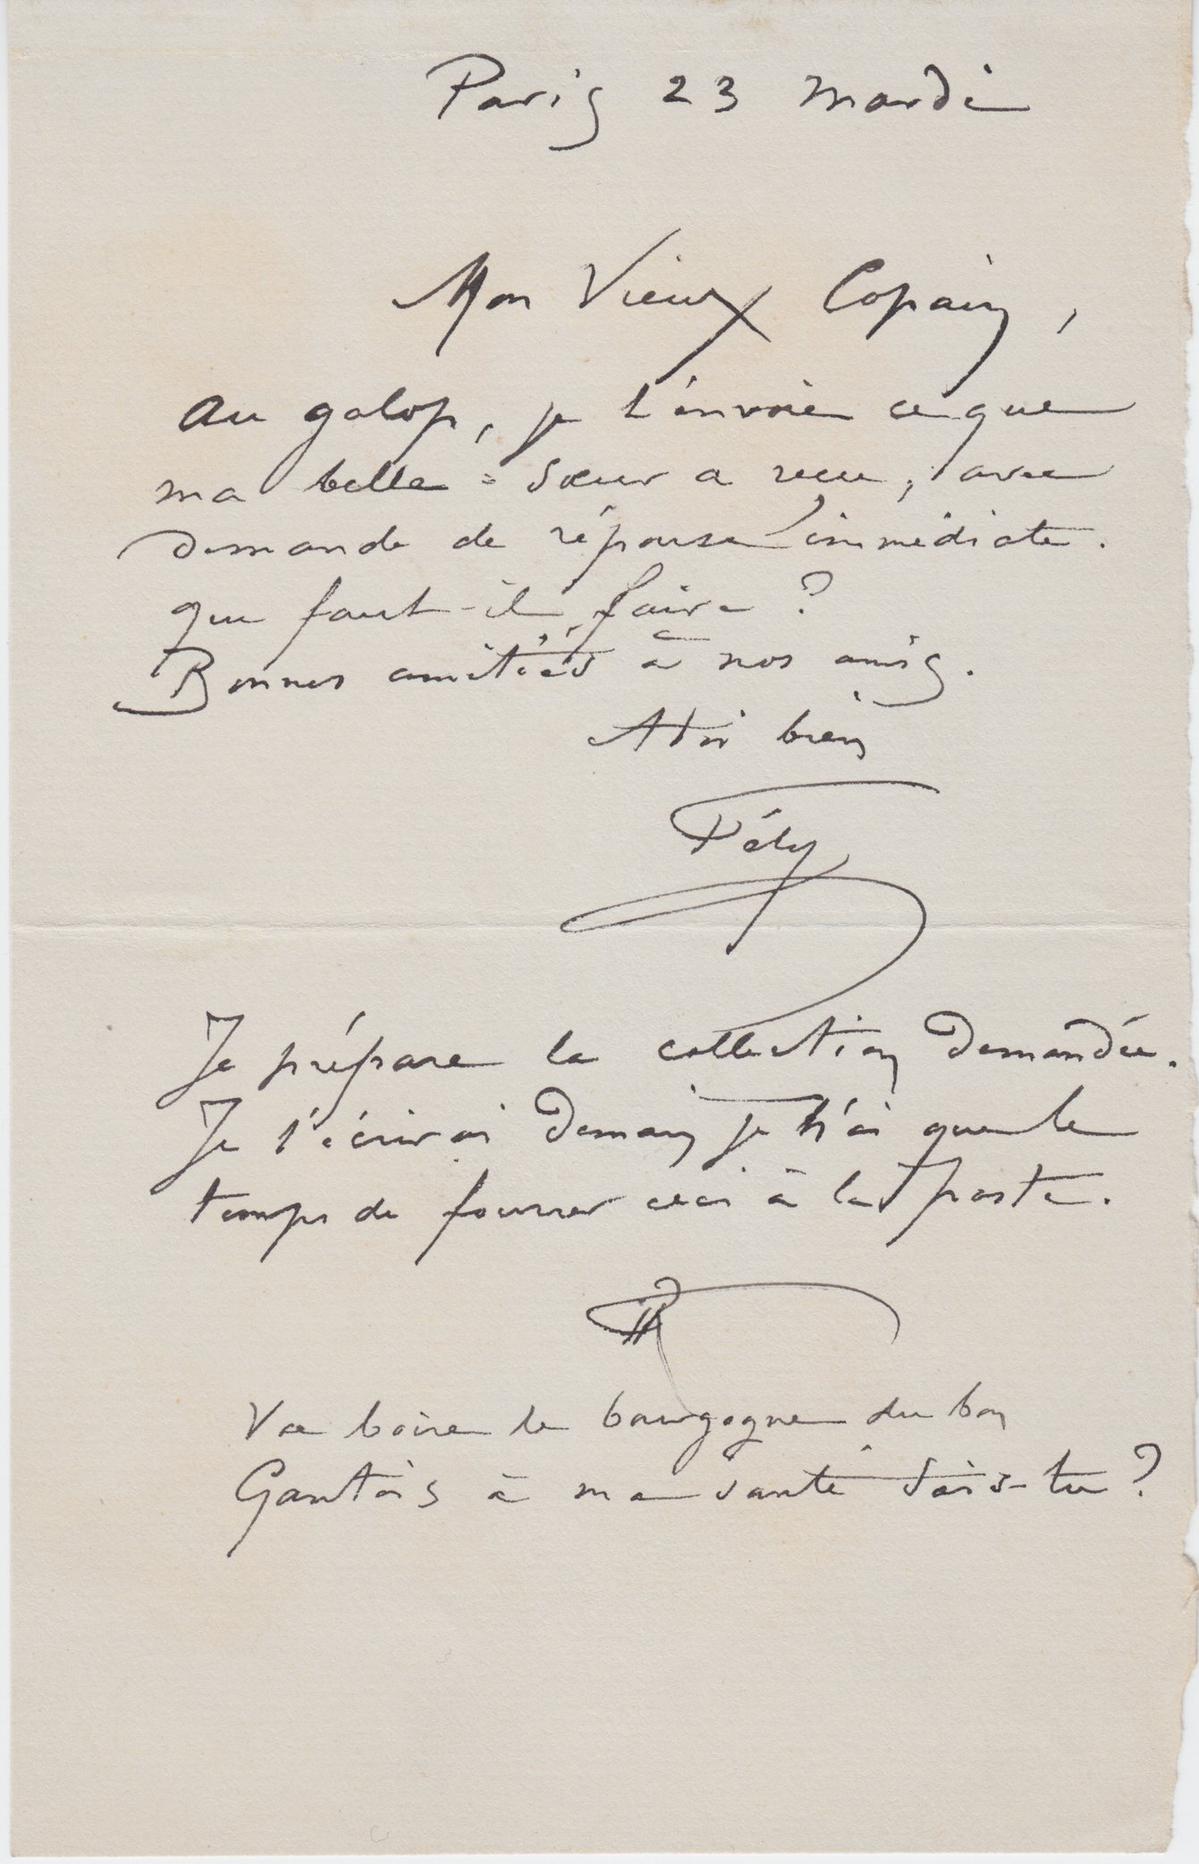 Paris 23 mardi
Mon Vieux Copain,
Au galop, je t'envoie ce que
ma belle=sœur a reçu, avec
demande de réponse immédiate.
que faut-il faire ?
Bonnes amitiés à nos amis.
A toi bien
Fély
Je prépare la collection demandée.
Je t'écrirai demain je n'ai que le
temps de fourrer ceci à la poste.
Va boire le bourgogne du bon
Gantois à ma santé sais-tu ?